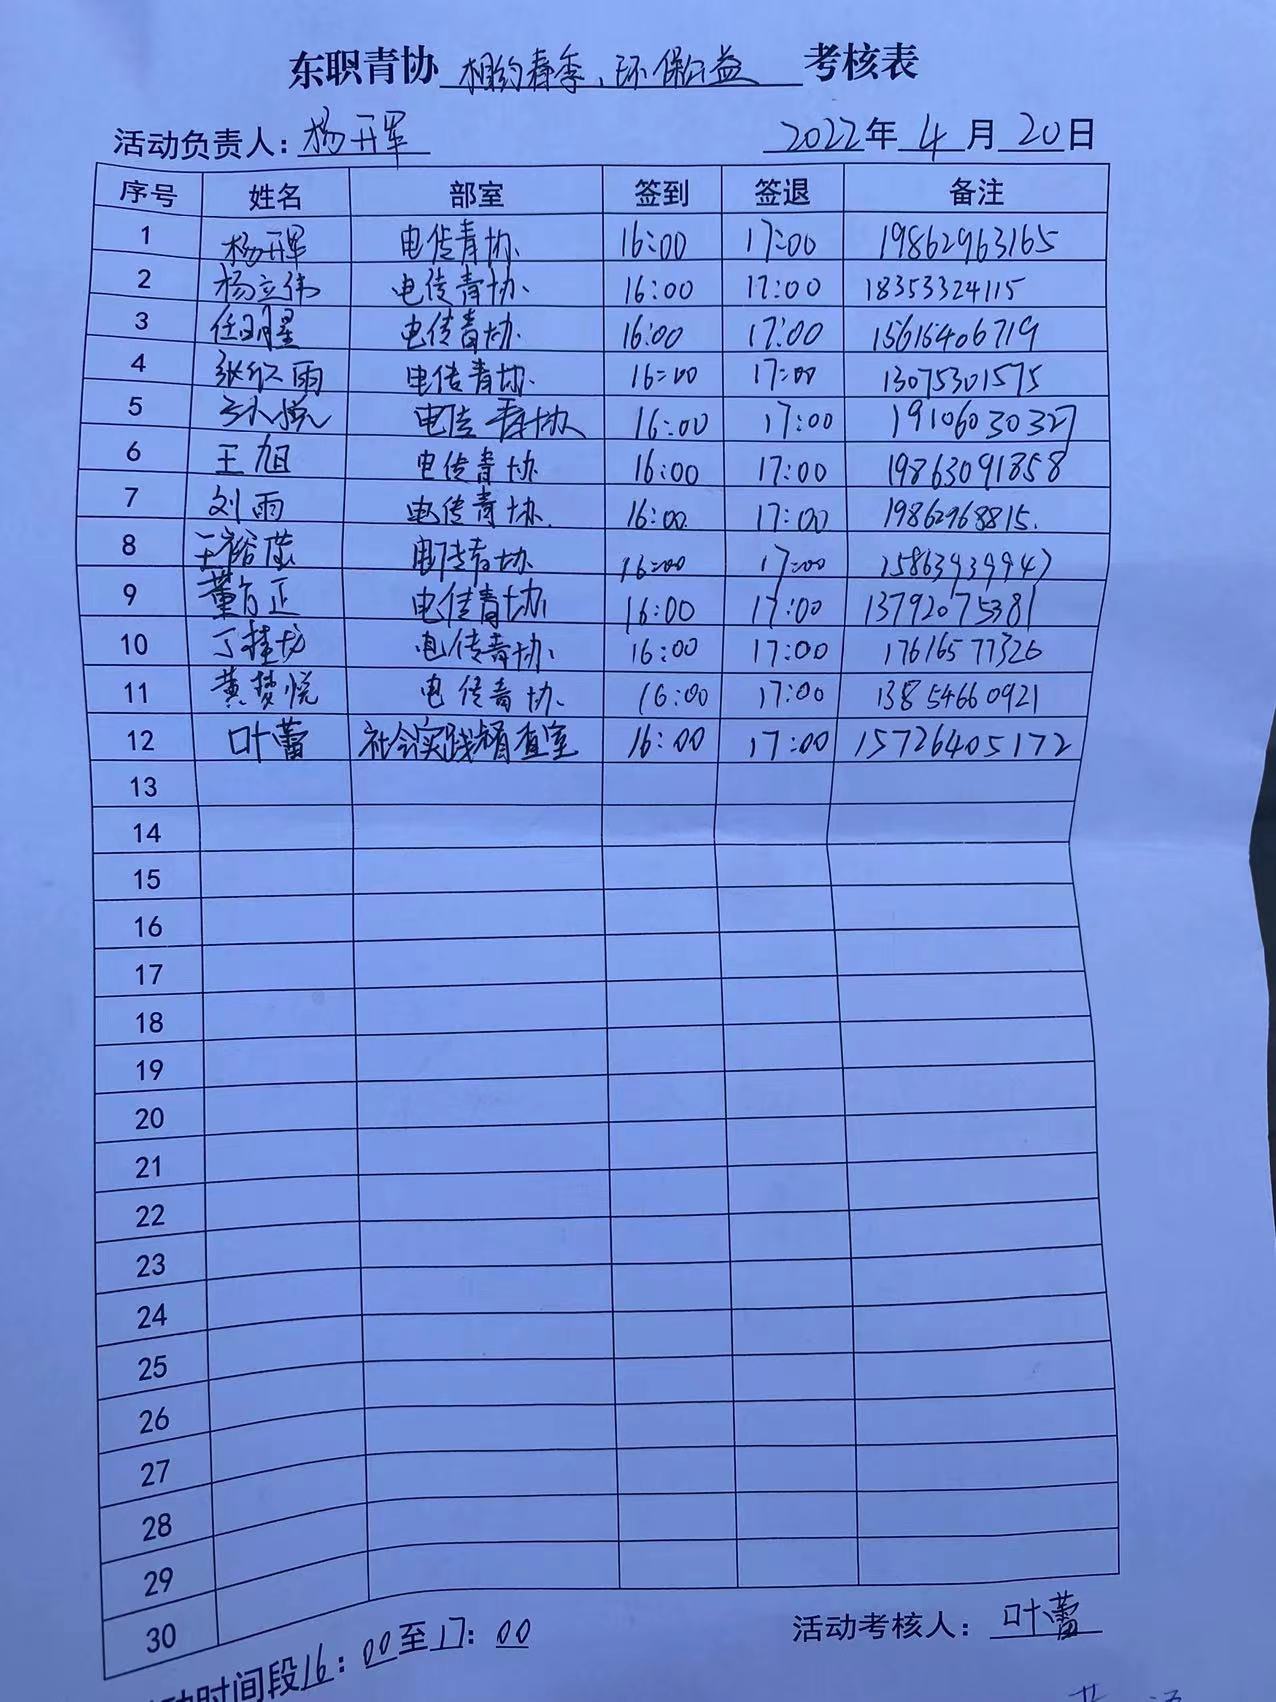 东职青协 相约春季、环保公益 考核表
活动负责人：杨开军 2022年 4 月 20 日
序号 姓名 部室 签到 签退 备注
1 杨开军 电传青协 16:00 17:00 19862963165
2 杨立伟 电传青协 16:00 17:00 18353324115
3 任明星 电传青协 16:00 17:00 15615406719
4 张欣雨 电传青协 16:00 17:00 13075301575
5 电传青协 16:00 17:00 19106030327
6 王旭 电传青协 16:00 17:00 19863091858
7 刘雨 电传青协 16:00 17:00 19862968815
8 王裕 电传青协 16:00 17:00 15863939947
9 董方正 电传青协 16:00 17:00 13792075381
10 丁桂 电传青协 16:00 17:00 17616577326
11 黄梦悦 电传青协 16:00 17:00 13854660921
12 叶蕾 社会实践督查室 16:00 17:00 15726405172
13
14
15
16
17
18
19
20
21
22
23
24
25
26
27
28
29
30
动时间段16：00至17：00 活动考核人：叶蕾